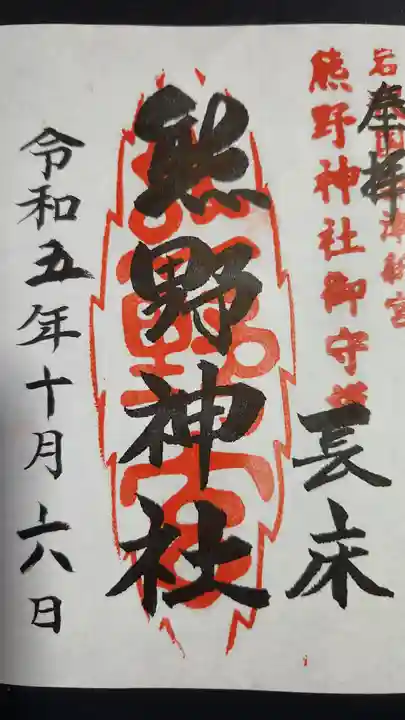 奉拝
熊野神社御守護
長床
熊野神社
令和五年十月十六日